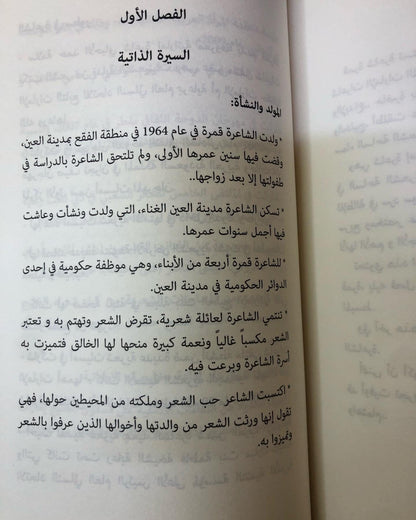 الفصل الأول
السيرة الذاتية
المولد والنشأة:
* ولدت الشاعرة قمرة في عام 1964 في منطقة الفقع بمدينة العين،
وقضت فيها سنين عمرها الأولى، ولم تلتحق الشاعرة بالدراسة في
طفولتها إلا بعد زواجها..
* تسكن الشاعرة مدينة العين الغناء، التي ولدت ونشأت وعاشت
فيها أجمل سنوات عمرها.
* للشاعرة قمرة أربعة من الأبناء، وهي موظفة حكومية في إحدى
الدوائر الحكومية في مدينة العين.
* تنتمي الشاعرة لعائلة شعرية، تقرض الشعر وتهتم به و تعتبر
الشعر مكسباً غالياً ونعمة كبيرة منحها لها الخالق فتميزت به
أسرة الشاعرة وبرعت فيه.
* اكتسبت الشاعر حب الشعر وملكته من المحيطين حولها، فهي
تقول إنها ورثت الشعر من والدتها وأخوالها الذين عرفوا بالشعر
وتميزوا به.